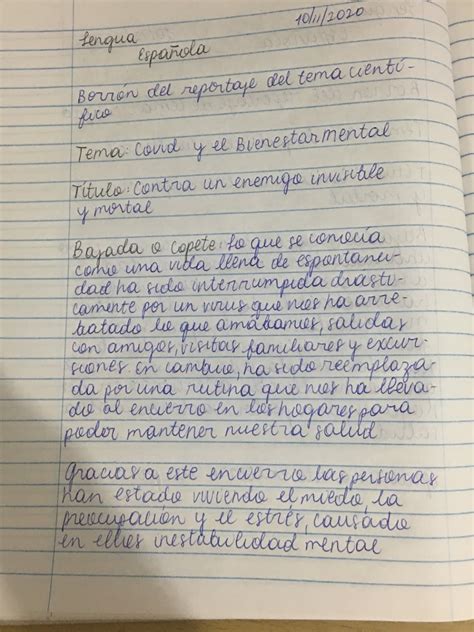 10/11/2020
Lengua
Española
Borrón del reportaje del tema cientí-
fico
Tema: Covid y el Bienestar mental
Título: Contra un enemigo invisible
y mortal
Bajada o copete: Lo que se conocía
como una vida llena de espontanei-
dad ha sido interrumpida drasti-
camente por un virus que nos ha arre-
batado lo que amábamos, salidas
con amigos, visitas familiares y excur-
siones. En cambio, ha sido reemplaza-
da por una rutina que nos ha lleva-
do al encierro en los hogares para
poder mantener nuestra salud
Gracias a este encierro las personas
han estado viviendo el miedo la
preocupación y el estrés, causado
en ellos inestabilidad mental